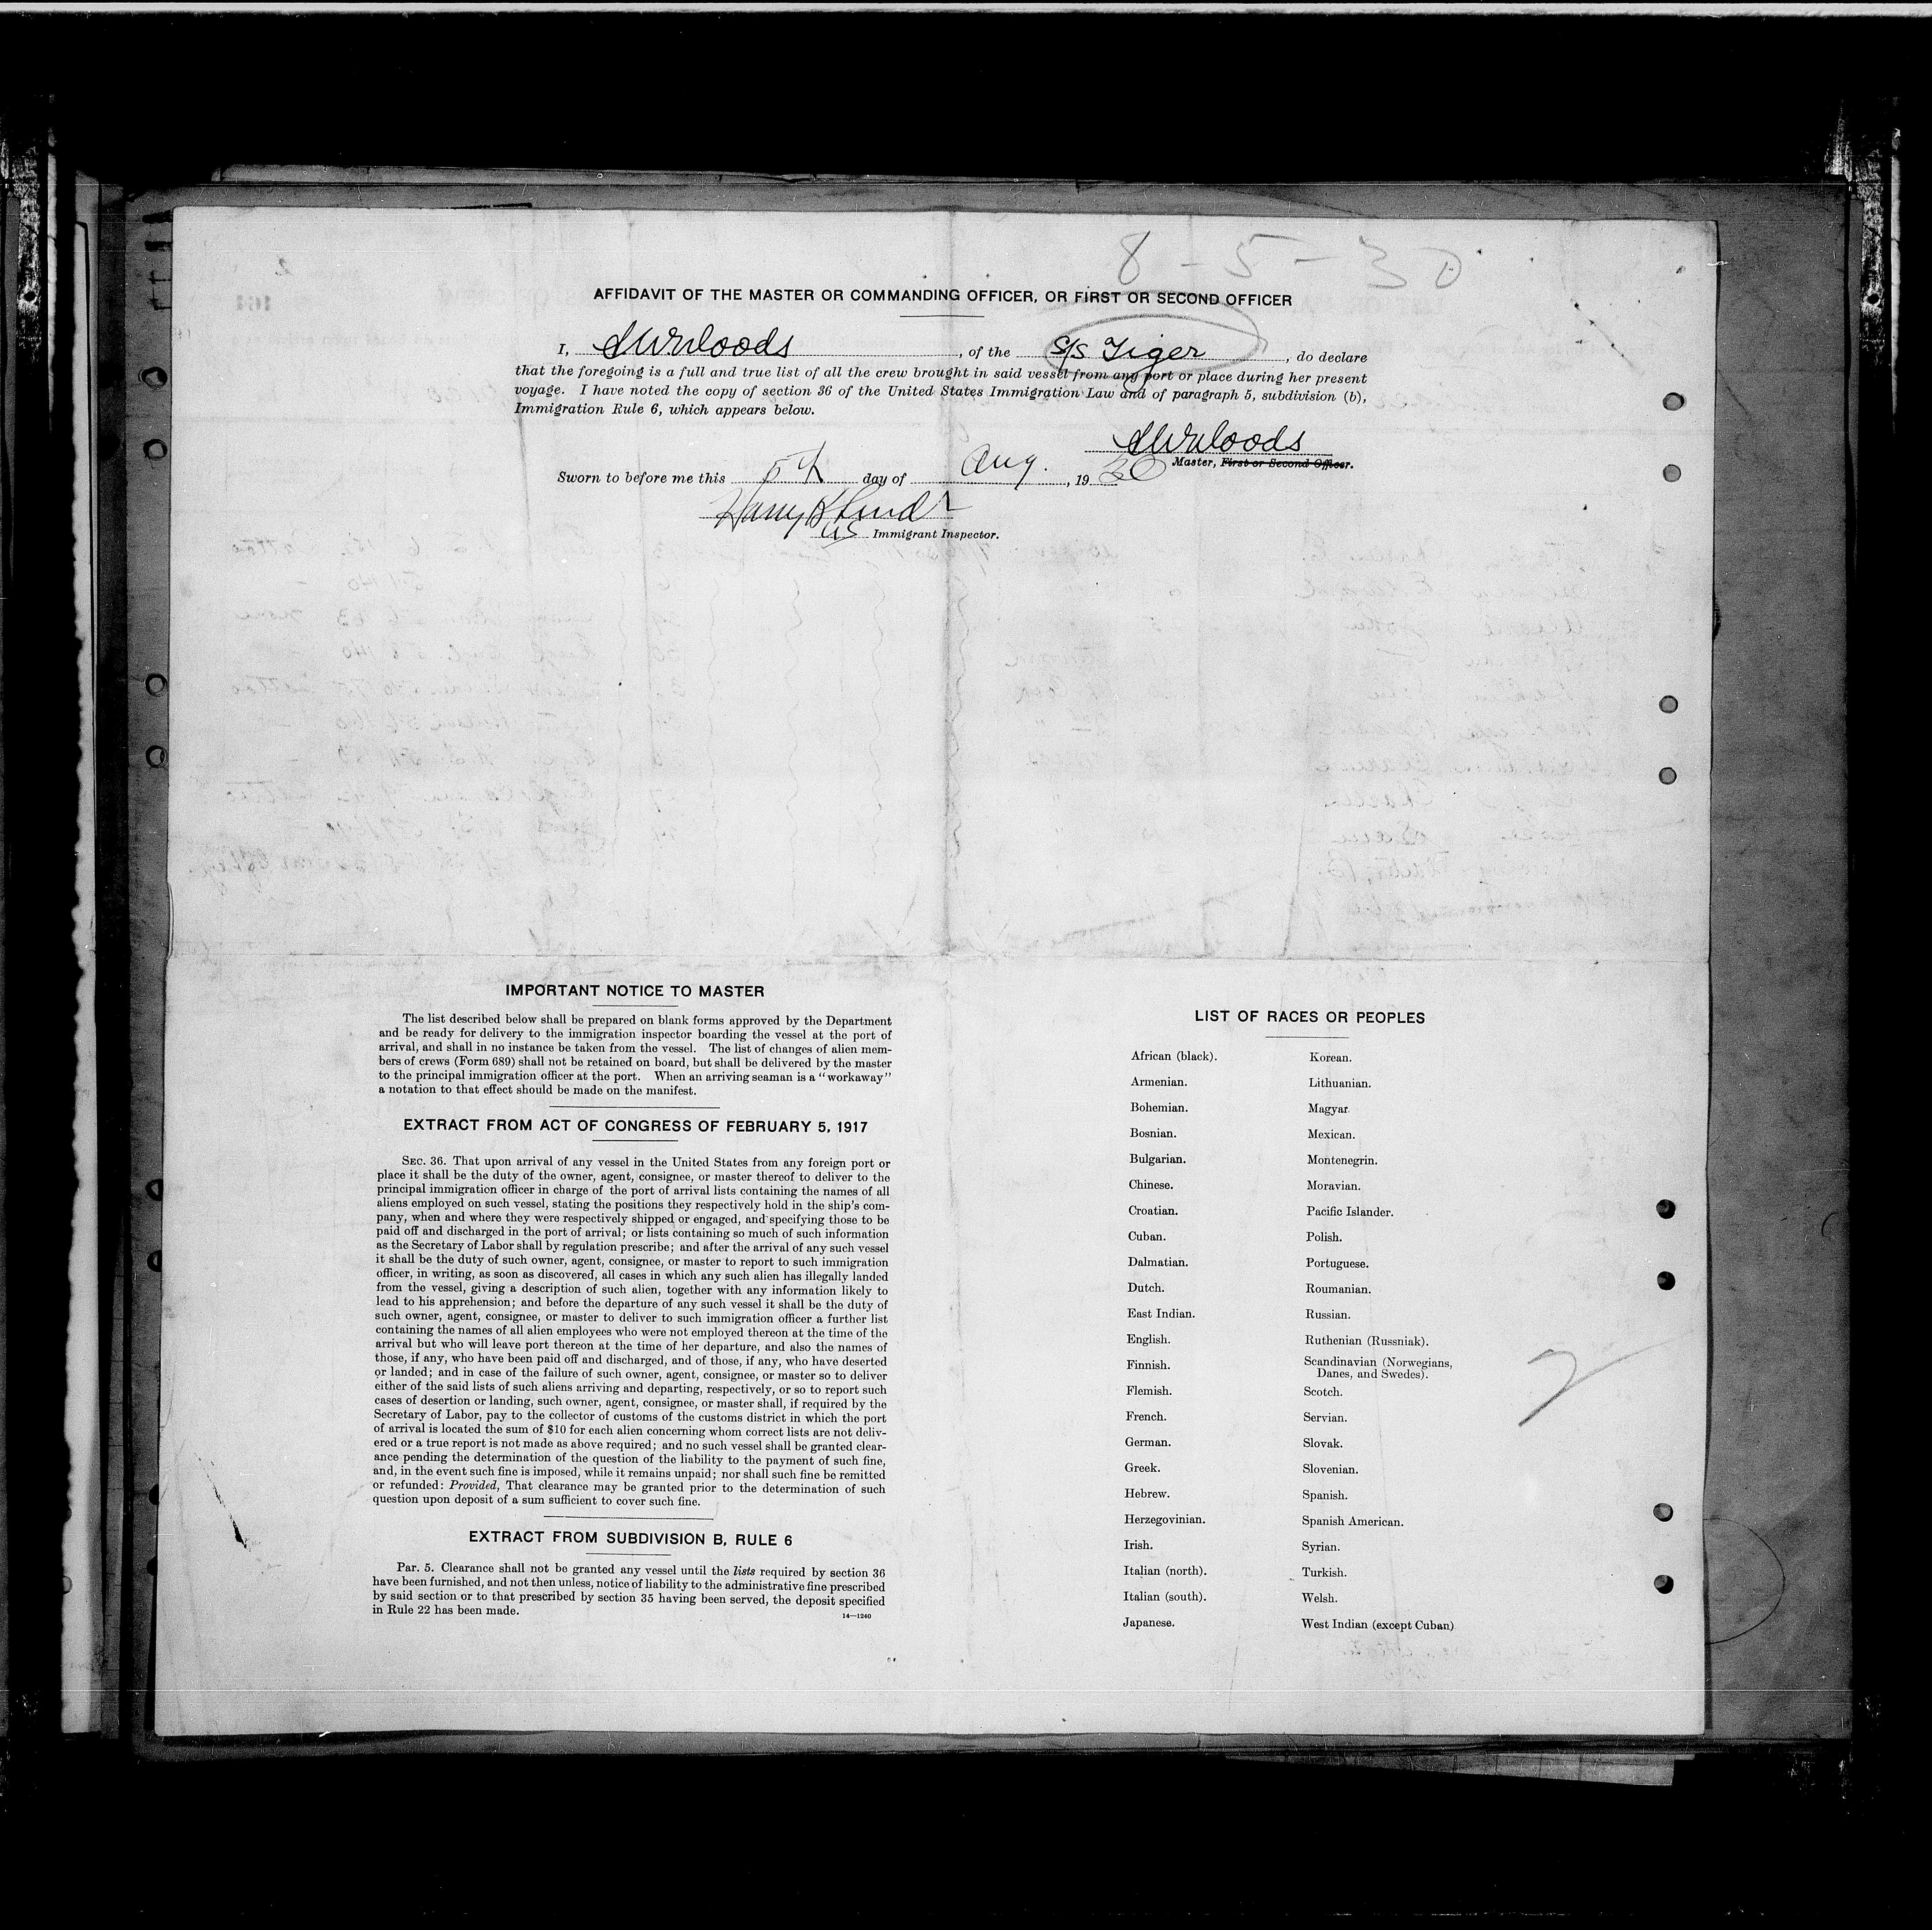 8-5-30
AFFIDAVIT OF THE MASTER OR COMMANDING OFFICER, OR FIRST OR SECOND OFFICER
I, Woods, of the S/S Tiger, do declare
that the foregoing is a full and true list of all the crew brought in said vessel from any port or place during her present
voyage. I have noted the copy of section 36 of the United States Immigration Law and of paragraph 5, subdivision (b),
Immigration Rule 6, which appears below.
Woods
Master, First or Second Officer.
Sworn to before me this 5th day of Aug., 1930
Harry
US Immigrant Inspector.
IMPORTANT NOTICE TO MASTER
The list described below shall be prepared on blank forms approved by the Department
and be ready for delivery to the immigration inspector boarding the vessel at the port of
arrival, and shall in no instance be taken from the vessel. The list of changes of alien mem-
bers of crews (Form 689) shall not be retained on board, but shall be delivered by the master
to the principal immigration officer at the port. When an arriving seaman is a "workaway"
a notation to that effect should be made on the manifest.
EXTRACT FROM ACT OF CONGRESS OF FEBRUARY 5, 1917
SEC. 36. That upon arrival of any vessel in the United States from any foreign port or
place it shall be the duty of the owner, agent, consignee, or master thereof to deliver to the
principal immigration officer in charge of the port of arrival lists containing the names of all
aliens employed on such vessel, stating the positions they respectively hold in the ship's com-
pany, when and where they were respectively shipped or engaged, and specifying those to be
paid off and discharged in the port of arrival; or lists containing so much of such information
as the Secretary of Labor shall by regulation prescribe; and after the arrival of any such vessel
it shall be the duty of such owner, agent, consignee, or master to report to such immigration
officer, in writing, as soon as discovered, all cases in which any such alien has illegally landed
from the vessel, giving a description of such alien, together with any information likely to
lead to his apprehension; and before the departure of any such vessel it shall be the duty of
such owner, agent, consignee, or master to deliver to such immigration officer a further list
containing the names of all alien employees who were not employed thereon at the time of the
arrival but who will leave port thereon at the time of her departure, and also the names of
those, if any, who have been paid off and discharged, and of those, if any, who have deserted
or landed; and in case of the failure of such owner, agent, consignee, or master so to deliver
either of the said lists of such aliens arriving and departing, respectively, or so to report such
cases of desertion or landing, such owner, agent, consignee, or master shall, if required by the
Secretary of Labor, pay to the collector of customs of the customs district in which the port
of arrival is located the sum of $10 for each alien concerning whom correct lists are not deliv-
ered or a true report is not made as above required; and no such vessel shall be granted clear-
ance pending the determination of the question of the liability to the payment of such fine,
and, in the event such fine is imposed, while it remains unpaid; nor shall such fine be remitted
or refunded: Provided, That clearance may be granted prior to the determination of such
question upon deposit of a sum sufficient to cover such fine.
EXTRACT FROM SUBDIVISION B, RULE 6
Par. 5. Clearance shall not be granted any vessel until the lists required by section 36
have been furnished, and not then unless, notice of liability to the administrative fine prescribed
by said section or to that prescribed by section 35 having been served, the deposit specified
in Rule 22 has been made.
14—1240
LIST OF RACES OR PEOPLES
African (black).
Armenian.
Bohemian.
Bosnian.
Bulgarian.
Chinese.
Croatian.
Cuban.
Dalmatian.
Dutch.
East Indian.
English.
Finnish.
Flemish.
French.
German.
Greek.
Hebrew.
Herzegovinian.
Irish.
Italian (north).
Italian (south).
Japanese.
Korean.
Lithuanian.
Magyar.
Mexican.
Montenegrin.
Moravian.
Pacific Islander.
Polish.
Portuguese.
Roumanian.
Russian.
Ruthenian (Russniak).
Scandinavian (Norwegians,
Danes, and Swedes).
Scotch.
Servian.
Slovak.
Slovenian.
Spanish.
Spanish American.
Syrian.
Turkish.
Welsh.
West Indian (except Cuban)
2